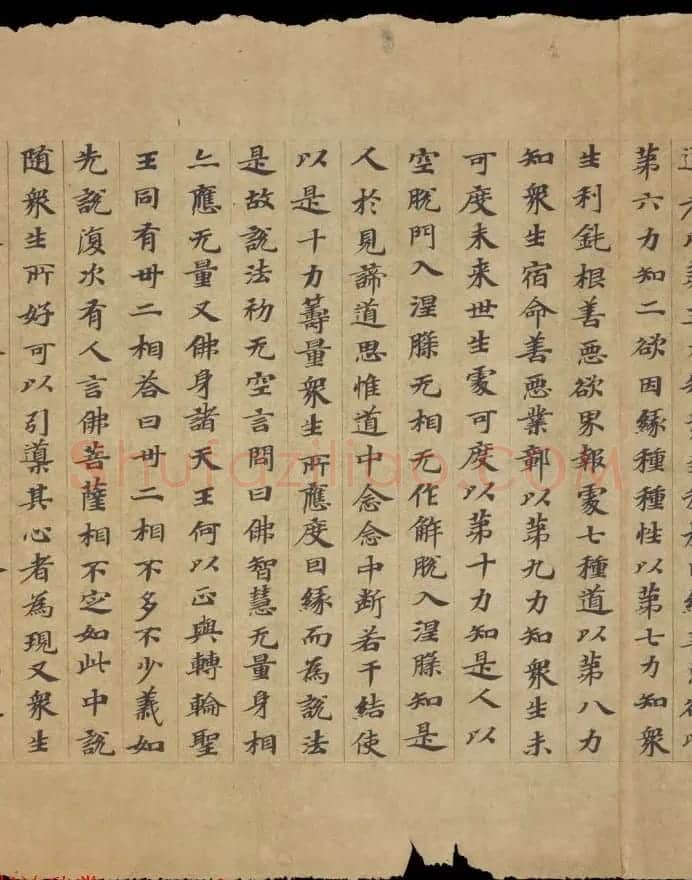 第六力知二欲因緣種種性以第七力知衆
生利鈍根善惡欲界報處七種道以第八力
知衆生宿命善惡業鄣以第九力知衆生未
可度未来世生處可度以第十力知是人以
空脫門入涅槃无相无作解脫入涅槃知是
人於見諦道思惟道中念念中断若干結使
以是十力籌量衆生所應度因緣而為說法
是故說法初无空言問曰佛智慧无量身相
亦應无量又佛身諸天王何以正與轉輪聖
王同有卅二相荅曰卅二相不多不少義如
先說復次有人言佛菩薩相不定如此中說
随衆生所好可以引導其心者為現又衆生
shufaziliao.com